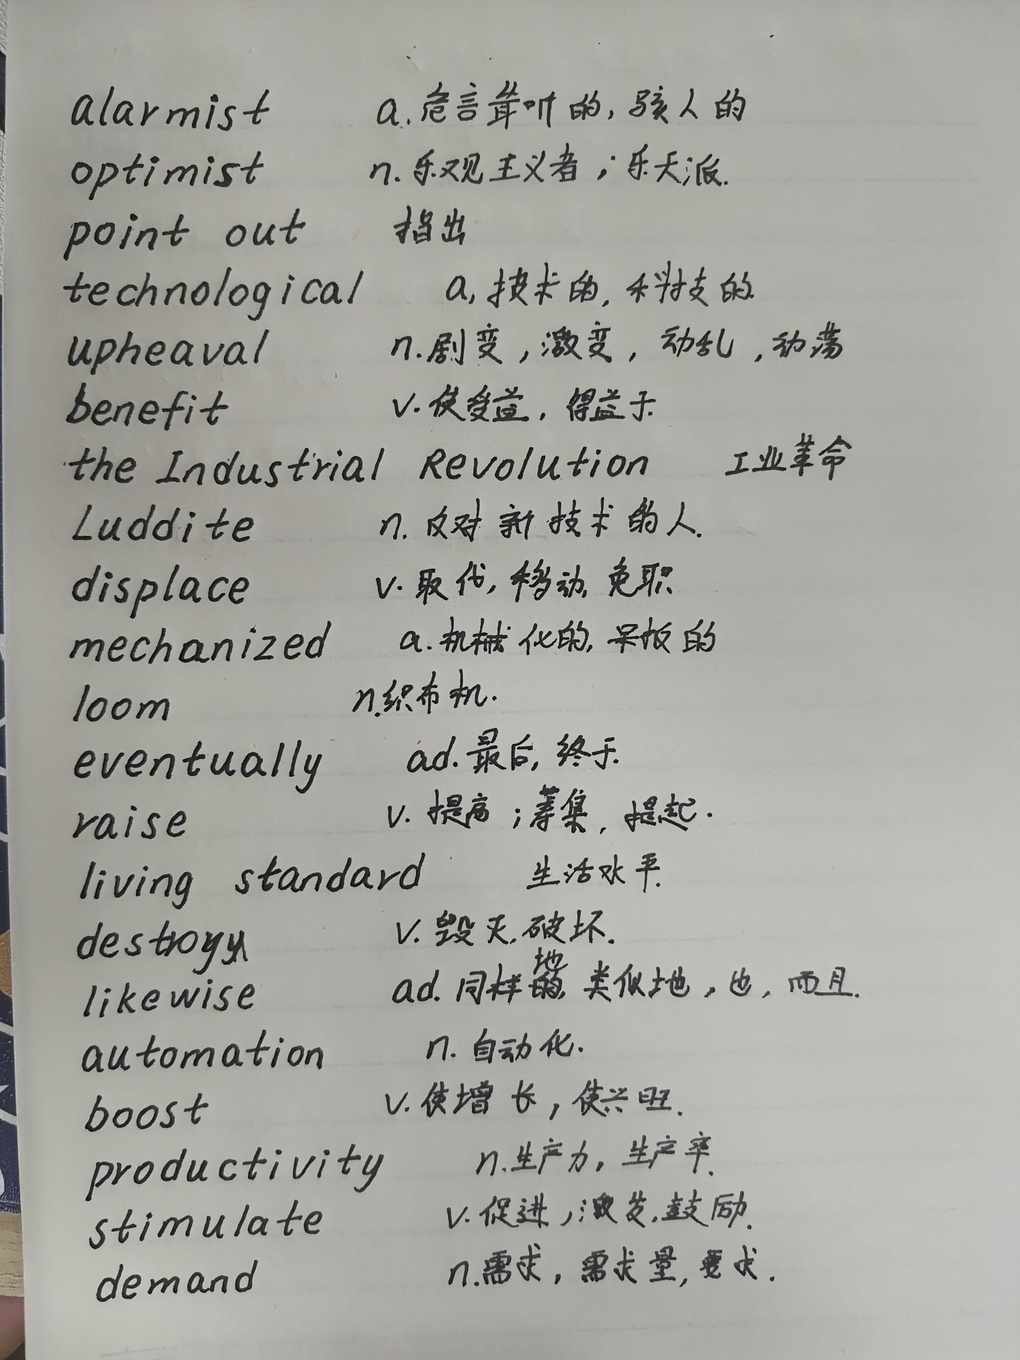 alarmist a. 危言耸听的, 骇人的
optimist n. 乐观主义者; 乐天派.
point out 指出
technological a. 技术的, 科技的
upheaval n. 剧变, 激变, 动乱, 动荡
benefit v. 使受益, 得益于
the Industrial Revolution 工业革命
Luddite n. 反对新技术的人.
displace v. 取代, 移动, 免职
mechanized a. 机械化的, 呆板的
loom n. 织布机.
eventually ad. 最后, 终于.
raise v. 提高; 筹集, 提起.
living standard 生活水平.
destroy v. 毁灭, 破坏.
likewise ad. 同样地, 类似地, 也, 而且.
automation n. 自动化.
boost v. 使增长, 使兴旺.
productivity n. 生产力, 生产率.
stimulate v. 促进, 激发, 鼓励.
demand n. 需求, 需求量, 要求.